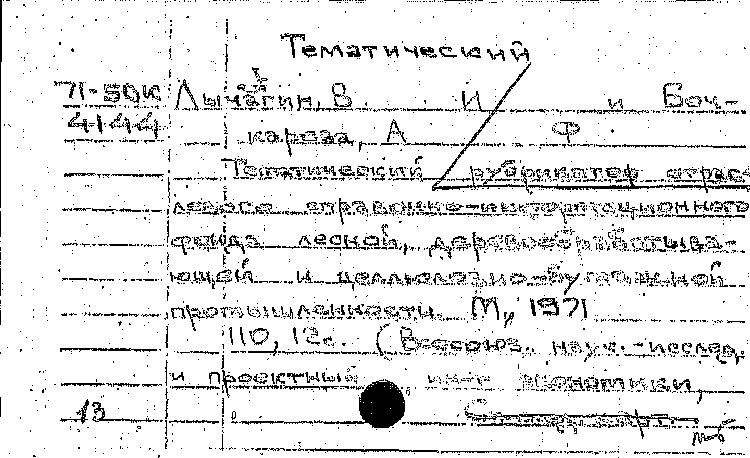 Тематический
71-50К Лычагин, В. И и Боч-
4144 карева, А Ф
Тематический рубрикатор отрас-
левого справочно-информационного
фонда лесной, деревообрабатыва-
ющей и целлюлозно-бумажной
промышленности М., 1971
110, 12с. (Всесоюз. науч.-исслед.
и проектный ин-т экономики,
13